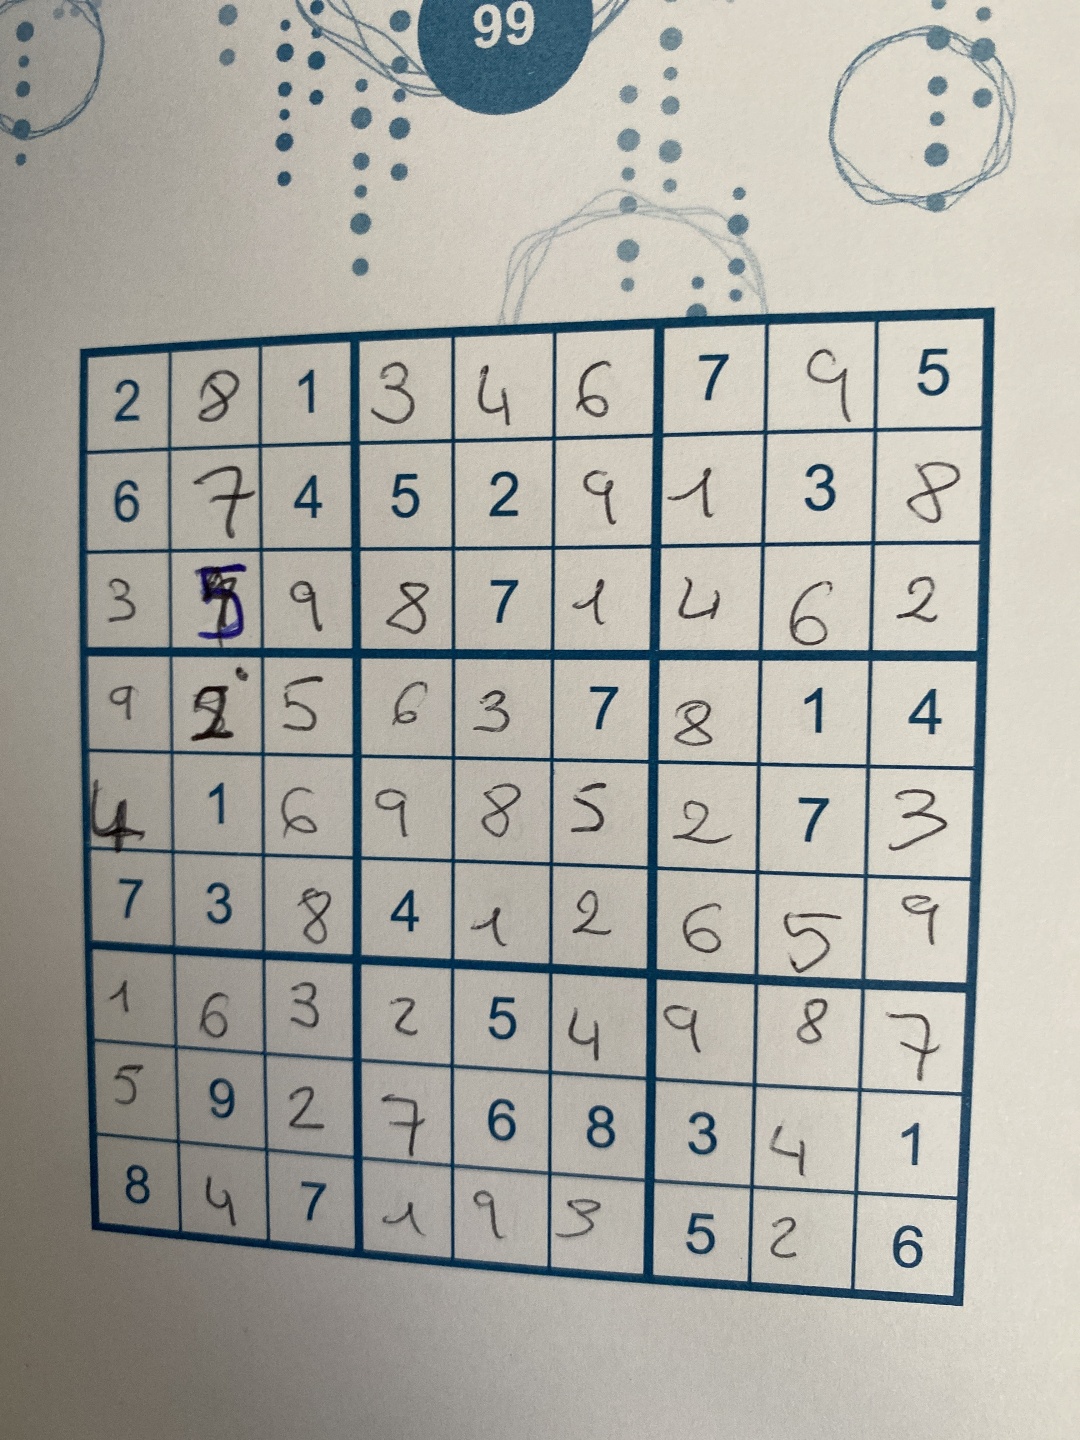 99
2 8 1 3 4 6 7 9 5
6 7 4 5 2 9 1 3 8
3 5 9 8 7 1 4 6 2
9 2 5 6 3 7 8 1 4
4 1 6 9 8 5 2 7 3
7 3 8 4 1 2 6 5 9
1 6 3 2 5 4 9 8 7
5 9 2 7 6 8 3 4 1
8 4 7 1 9 3 5 2 6